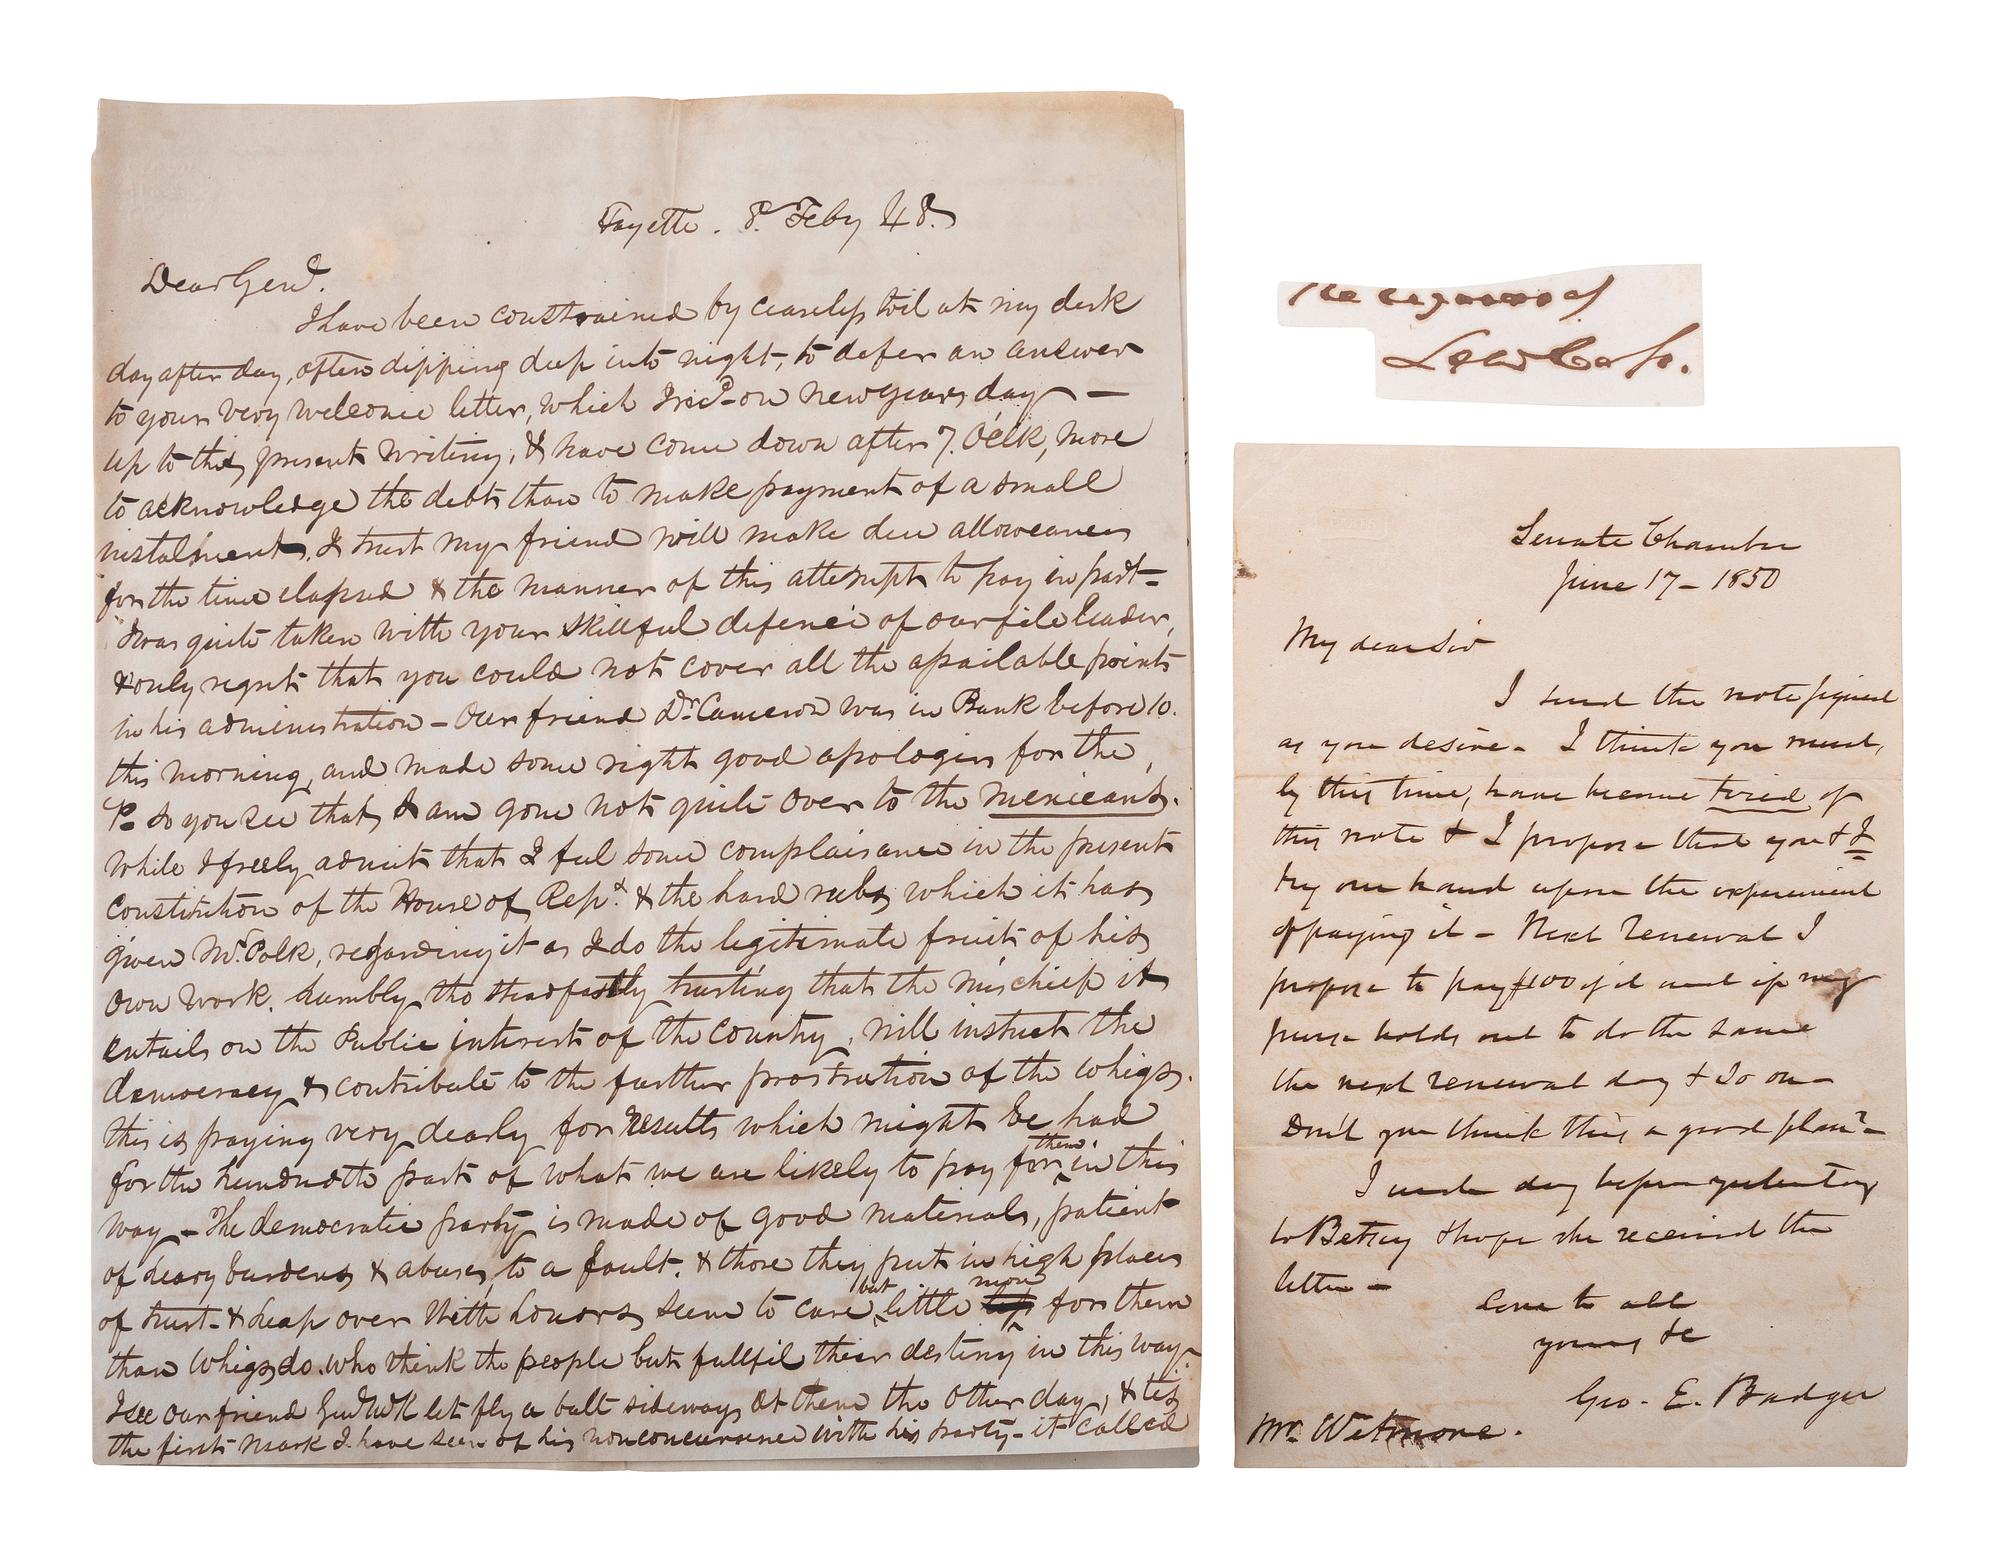 Fayette. 8. Feby 48.
Dear Genl.
I have been constrained by ceaseless toil at my desk
day after day, often dipping deep into night, to defer an answer
to your very welcome letter, which I recd on newyears day —
up to this present writing, & have come down after 7. Oclk, more
to acknowledge the debt than to make payment of a small
instalment. I trust my friend will make due allowances
for the time elapsed & the manner of this attempt to pay in part—
I was quite taken with your skillful defence of our file leader,
& only regret that you could not cover all the assailable points
in his administration — Our friend Dr. Cameron was in Bank before 10.
this morning, and made some right good apologies for the
P— so you see that I am gone not quite over to the mexicans.
While I freely admit that I feel some complaisance in the present
constitution of the House of Reps. & the hard rubs which it has
given Mr. Polk, regarding it as I do the legitimate fruit of his
own work. humbly tho steadfastly trusting that the mischief it
entails on the Public interest of the country, will instruct the
democracy & contribute to the further prostration of the whigs.
this is paying very dearly for results which might be had
for the hundredth part of what we are likely to pay for them in this
way — The democratic party is made of good materials, patient
of heavy burdens & abuses, to a fault. & those they put in high places
of trust — & heap over with honors seem to care but little more for them
than Whigs do. who think the people but fullfil their destiny in this way—
I see our friend let fly a bolt sideways at them the other day, & tis
the first mark I have seen of his nonconcurrence with his party — it called
Lew Cass.
Senate Chamber
June 17 – 1850
My dear Sir
I send the note signed
as you desire. I think you must,
by this time, have become tired of
this note & I propose that you & I
try our hand upon the experiment
of paying it — Next renewal I
propose to pay $100 of it and if my
purse holds out to do the same
the next renewal day & so on —
Don't you think this a good plan? —
I wrote day before yesterday
to Betsey & hope she received the
letter —
Love to all
yours &c
Geo. E. Badger
Mr. Wetmore.